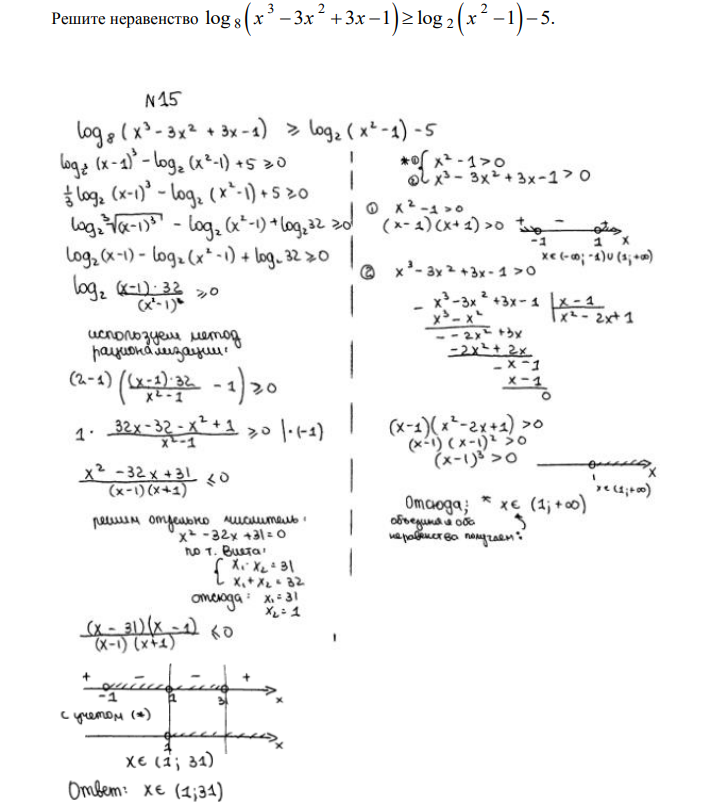 Решите неравенство log₈(x³ − 3x² + 3x − 1) ≥ log₂(x² − 1) − 5.
N15
log₈(x³ - 3x² + 3x - 1) ≥ log₂(x² - 1) - 5
log₂³(x-1)³ - log₂(x²-1) + 5 ≥ 0
1/3 log₂(x-1)³ - log₂(x²-1) + 5 ≥ 0
log₂ ∛(x-1)³ - log₂(x²-1) + log₂32 ≥ 0
log₂(x-1) - log₂(x²-1) + log₂32 ≥ 0
log₂ (x-1)·32/(x²-1) ≥ 0
используем метод
рационализации:
(2-1)((x-1)·32/(x²-1) - 1) ≥ 0
1· (32x - 32 - x² + 1)/(x²-1) ≥ 0 |·(-1)
(x² - 32x + 31)/((x-1)(x+1)) ≤ 0
решим отдельно числитель:
x² - 32x + 31 = 0
по т. Виета:
{ x₁·x₂ = 31
x₁ + x₂ = 32
отсюда: x₁ = 31
x₂ = 1
(x - 31)(x - 1)/((x-1)(x+1)) ≤ 0
+ - - +
-1 1 31 x
с учетом (*)
1 x
x∈ (1; 31)
Ответ: x∈ (1;31)
* ① { x² - 1 > 0
② x³ - 3x² + 3x - 1 > 0
① x² - 1 > 0
(x-1)(x+1) > 0 + - +
-1 1 x
x∈(-∞; -1)∪(1; +∞)
② x³ - 3x² + 3x - 1 > 0
- x³ - 3x² + 3x - 1 | x - 1
x³ - x² | x² - 2x + 1
- -2x² + 3x
-2x² + 2x
- x - 1
x - 1
0
(x-1)(x² - 2x + 1) > 0
(x-1)(x-1)² > 0
(x-1)³ > 0
1 x
x∈(1; +∞)
Отсюда; * x∈ (1; +∞)
объединяя оба
неравенства получаем: